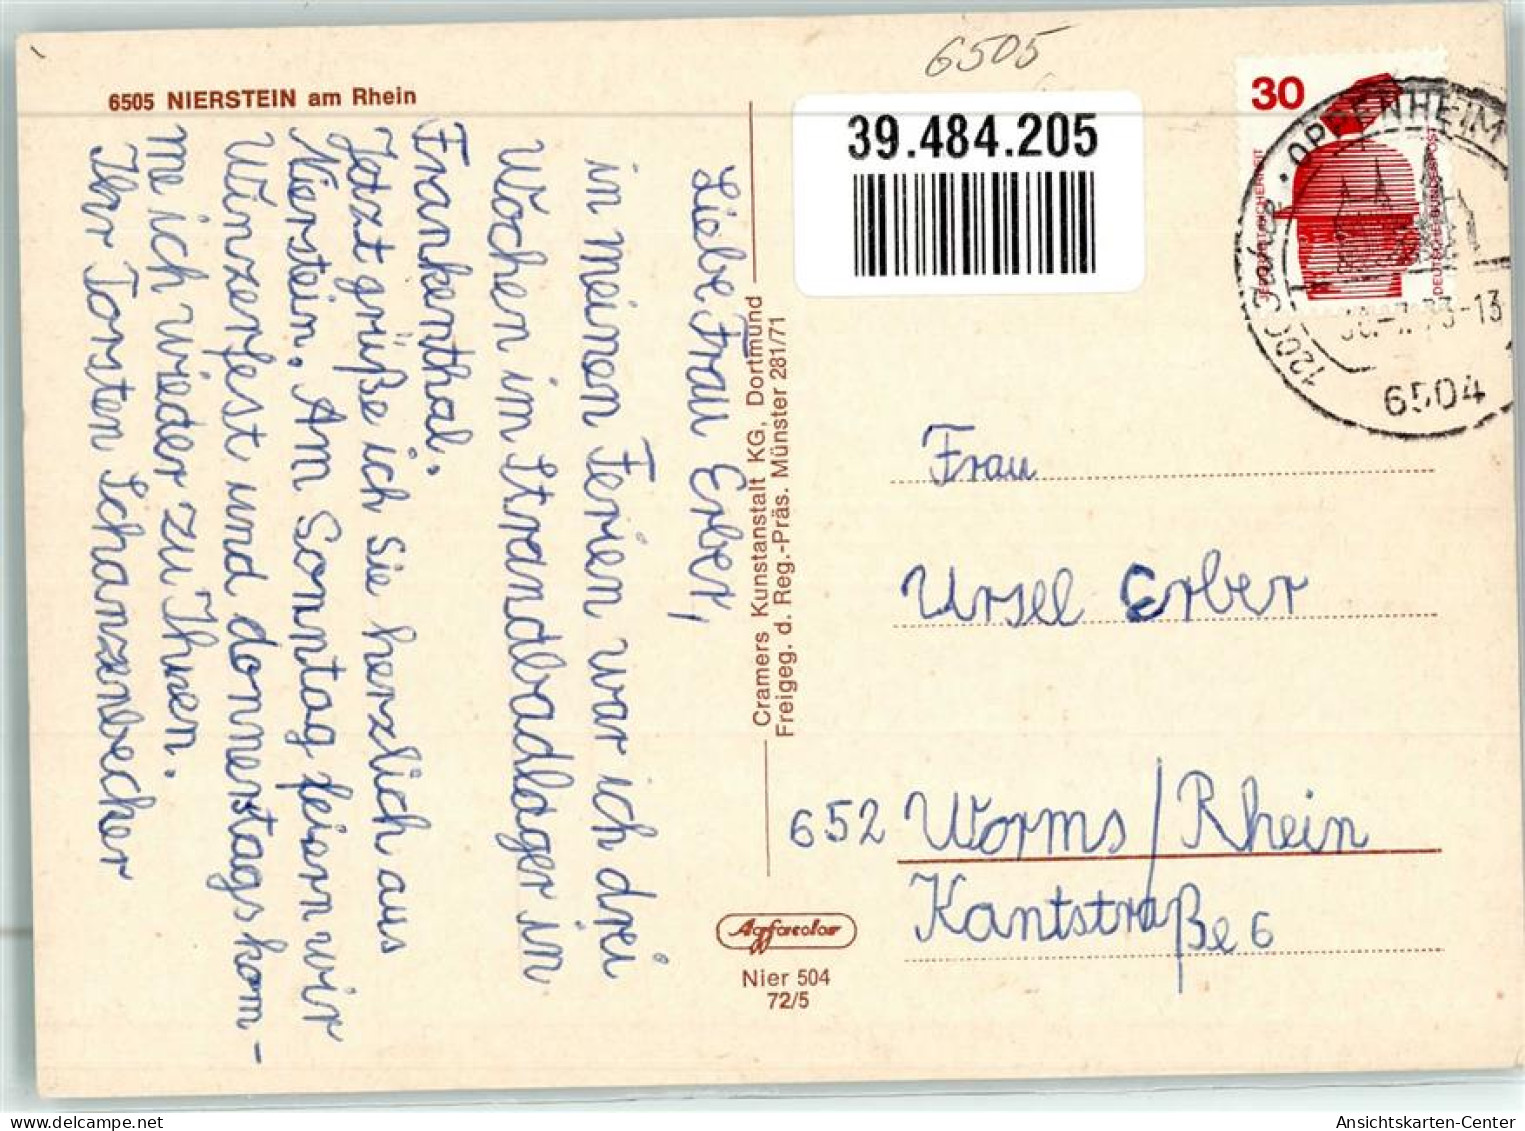 6505 NIERSTEIN am Rhein
6505
39.484.205
Liebe Frau Erber,
in meinen Ferien war ich drei
Wochen im Strandbadlager in
Frankenthal.
Jetzt grüße ich Sie herzlich aus
Nierstein. Am Sonntag feiern wir
Winzerfest und donnerstags kom-
me ich wieder zu Ihnen.
Ihr Torsten Schanzenbecher
Cramers Kunstanstalt KG, Dortmund
Freigeg. d. Reg.-Präs. Münster 281/71
Agfacolor
Nier 504
72/5
30
DEUTSCHE BUNDESPOST
1200 Jahre • OPPENHEIM
-13
6504
Frau
Ursel Erber
652 Worms/Rhein
Kantstraße 6
Ansichtskarten-Center